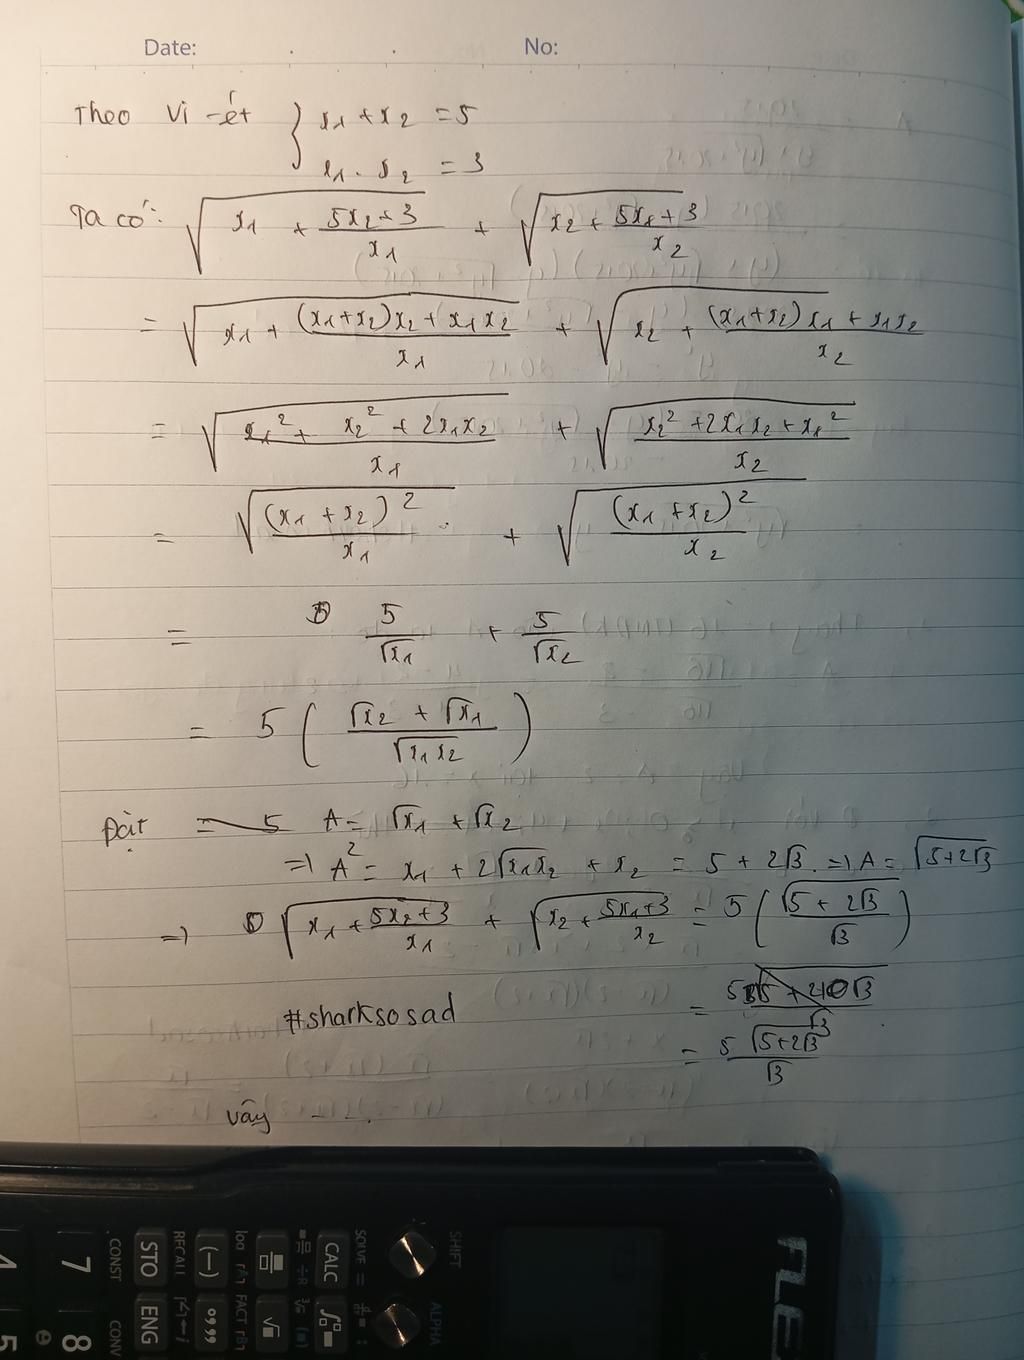 Date: . . No:
Theo Vi-ét { x1 + x2 = 5
x1 . x2 = 3
Ta có: √(x1 + (5x2 + 3)/x1) + √(x2 + (5x1 + 3)/x2)
= √(x1 + ((x1+x2)x2 + x1x2)/x1) + √(x2 + ((x1+x2)x1 + x1x2)/x2)
= √((x1² + x2² + 2x1x2)/x1) + √((x2² + 2x1x2 + x1²)/x2)
= √((x1 + x2)²/x1) + √((x1 + x2)²/x2)
= 5/√x1 + 5/√x2
= 5 ((√x2 + √x1)/√(x1x2))
Đặt A = √x1 + √x2
=> A² = x1 + 2√(x1x2) + x2 = 5 + 2√3. => A = √(5+2√3)
=> √(x1 + (5x2+3)/x1) + √(x2 + (5x1+3)/x2) = 5 (√(5 + 2√3)/√3)
#sharksosad
= 5√(5+2√3)/√3
vậy - - .
SHIFT ALPHA
SOLVE =
CALC
(−)
RECALL
STO ENG
CONST CONV
FACT
7 8
4 5